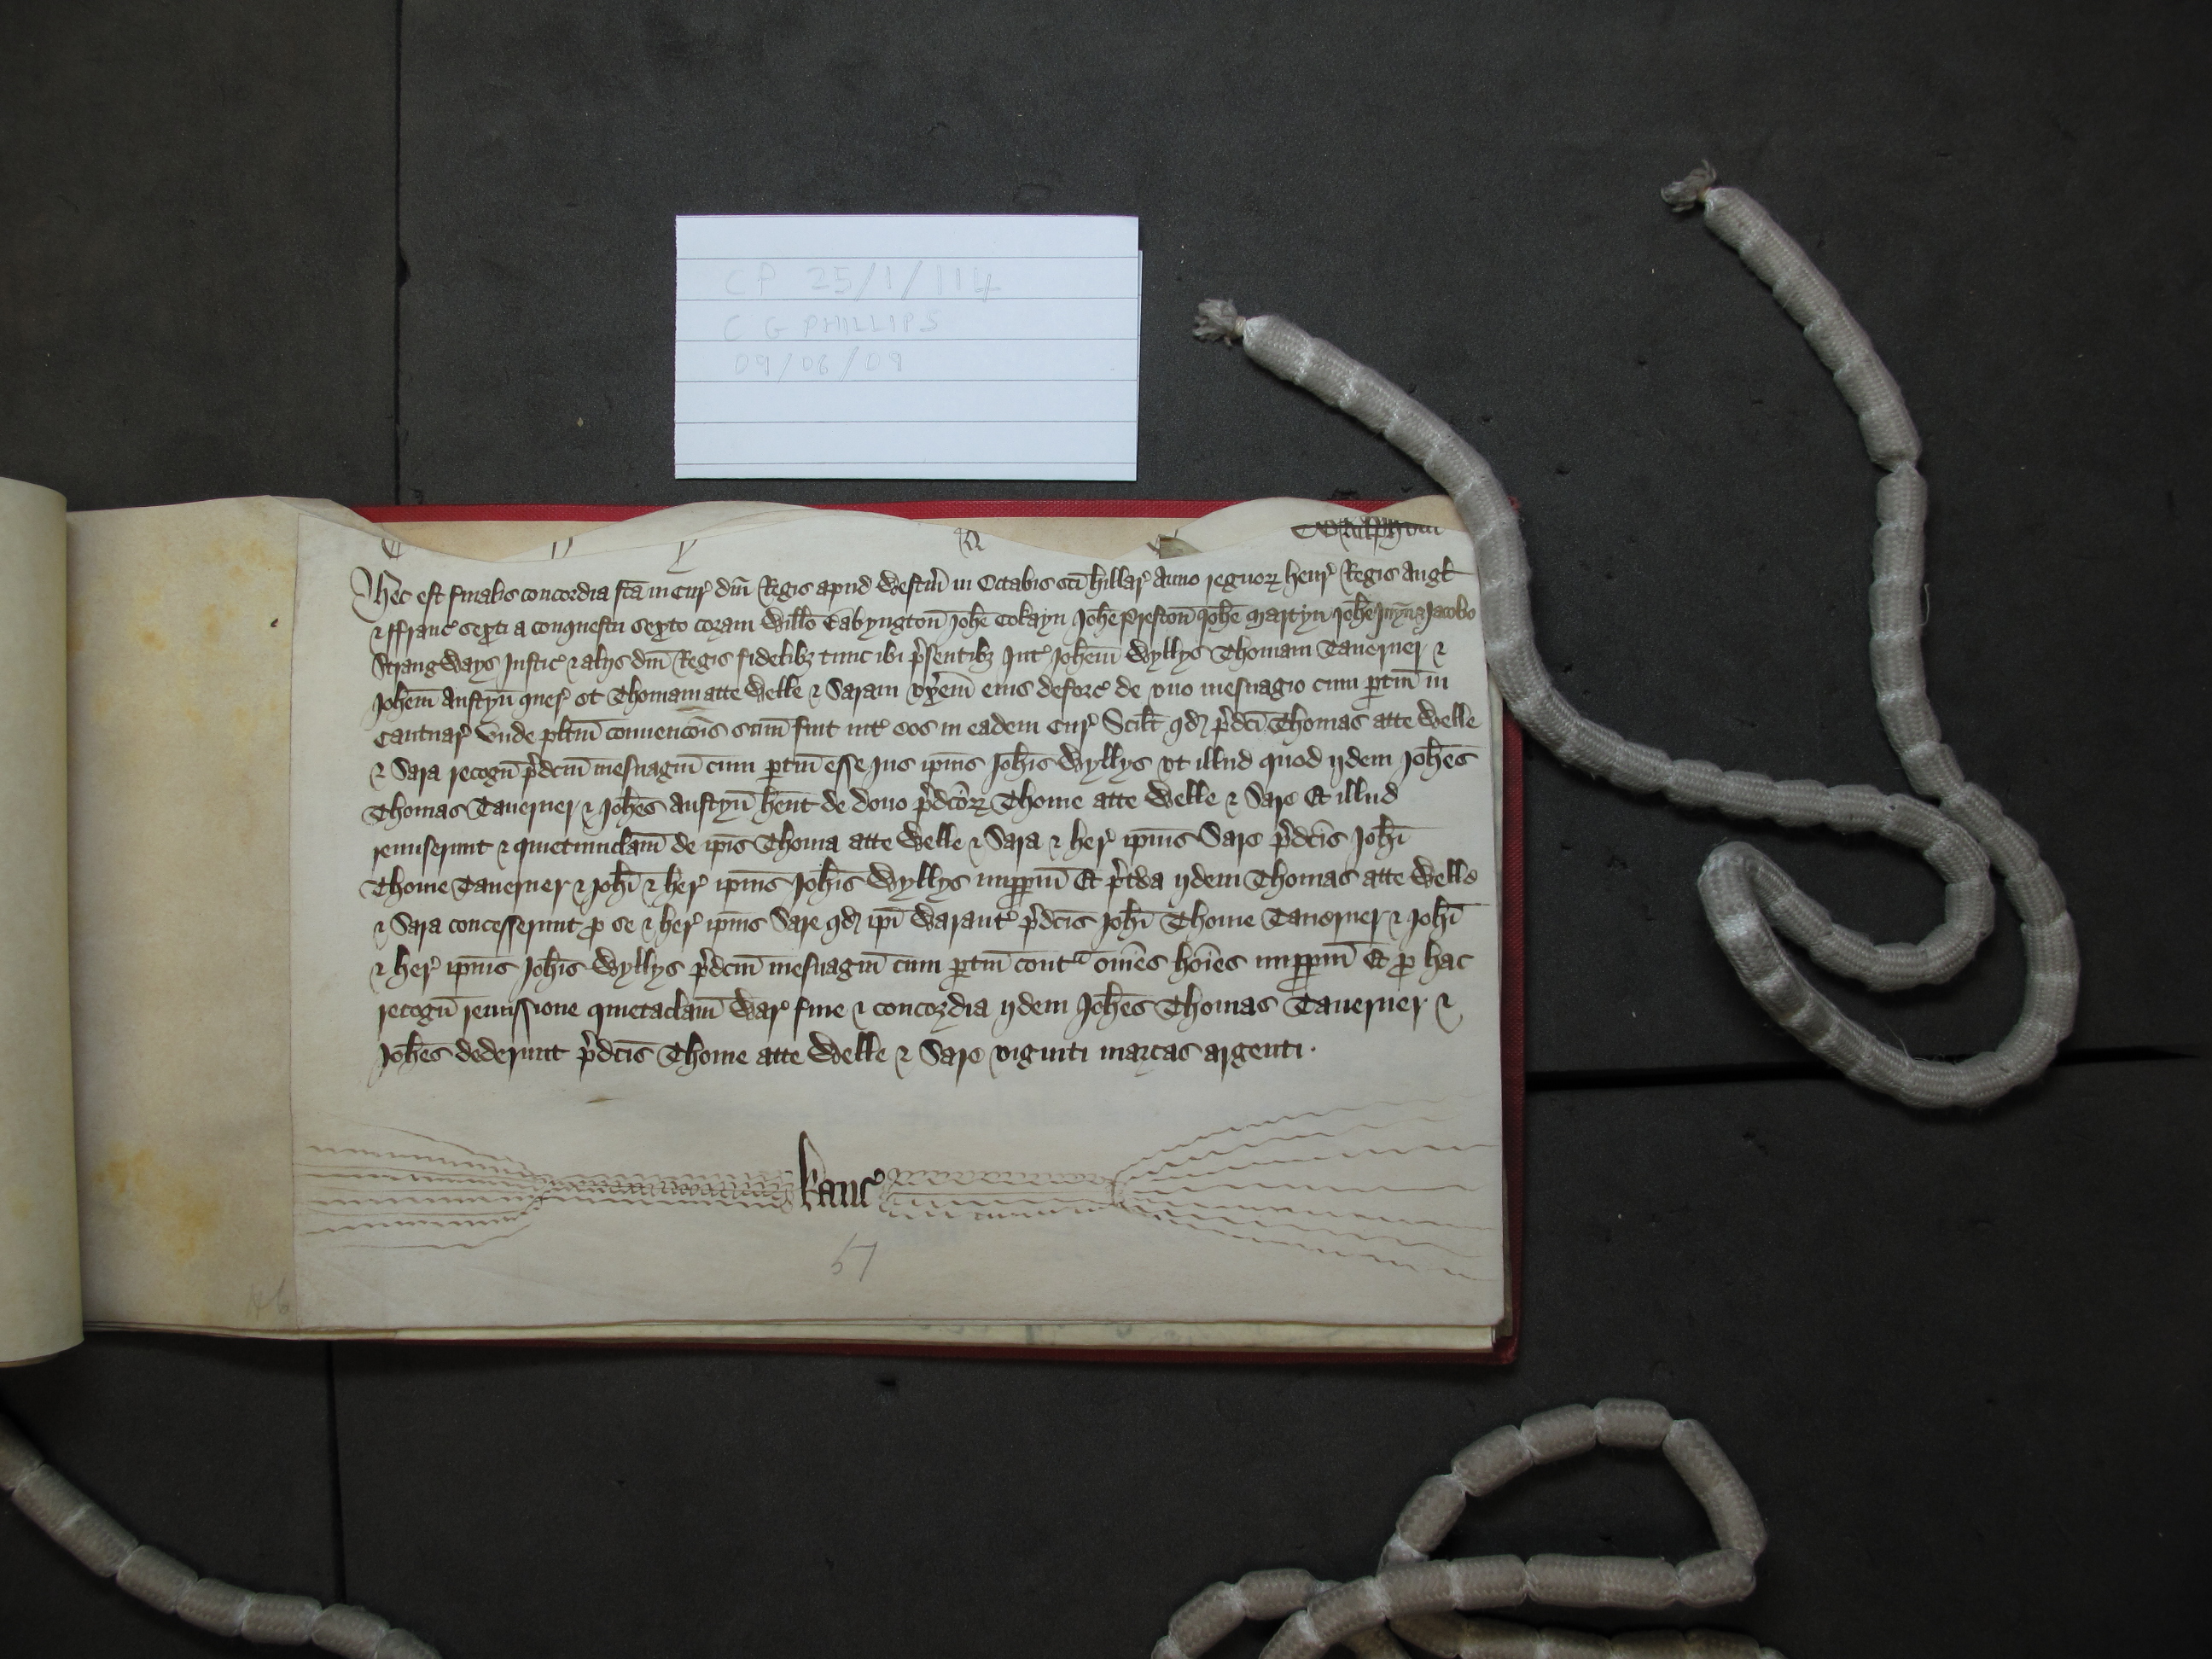 CP 25/1/114
C G PHILLIPS
09/06/09
Hec est finalis concordia fc̄a in Cur᷒ dn̄i Regis apud Westm̄ in Octabis sc̄i Hillar᷒ Anno regnoꝝ Henr᷒ Regis Angl̄
⁊ ffranc᷒ sexti a conquestu sexto coram Will̄o Babyngton̄ Joh̄e Cokayn Joh̄e Preston̄ Joh̄e Martyn Joh̄e Juyn̄ ⁊ Jacobo
Strangways Justic᷒ ⁊ alijs dn̄i Regis fidelibȝ tunc ibi p̄sentibȝ Int᷒ Joh̄em Wyllys Thomam Tauerner ⁊
Joh̄em Austyn̄ quer᷒ et Thomam atte Welle ⁊ Saram vx̄em eius deforc᷒ de vno mesuagio cum ptin̄ in
Cantuar᷒ Vnde pl̄itm̄ conuenc̄ois sum̄ fuit int᷒ eos in eadem Cur᷒ Scil̄t qd̄ p̄dc̄i Thomas atte Welle
⁊ Sara recogn̄ p̄dcm̄ mesuagiū cum ptin̄ esse Jus ip̄ius Joh̄is Wyllys vt illud quod ijdem Joh̄es
Thomas Tauerner ⁊ Joh̄es Austyn̄ hent̄ de dono p̄dc̄oꝝ Thome atte Welle ⁊ Sare Et illud
remiserunt ⁊ quietumclam̄ de ip̄is Thoma atte Welle ⁊ Sara ⁊ her᷒ ip̄ius Sare p̄dc̄is Joh̄i
Thome Tauerner ⁊ Joh̄i ⁊ her᷒ ip̄ius Joh̄is Wyllys imppm̄ Et p̄tea ijdem Thomas atte Welle
⁊ Sara concesserunt ꝓ se ⁊ her᷒ ip̄ius Sare qd̄ ip̄i Warant᷒ p̄dc̄is Joh̄i Thome Tauerner ⁊ Joh̄i
⁊ her᷒ ip̄ius Joh̄is Wyllys p̄dcm̄ mesuagiū cum ptin̄ contᵃ om̄es hōies imppm̄ Et ꝓ hac
recogn̄ remissione quietaclam̄ War᷒ fine ⁊ concordia ijdem Joh̄es Thomas Tauerner ⁊
Joh̄es dederunt p̄dc̄is Thome atte Welle ⁊ Sare viginti marcas argenti.
Kanc᷒
57